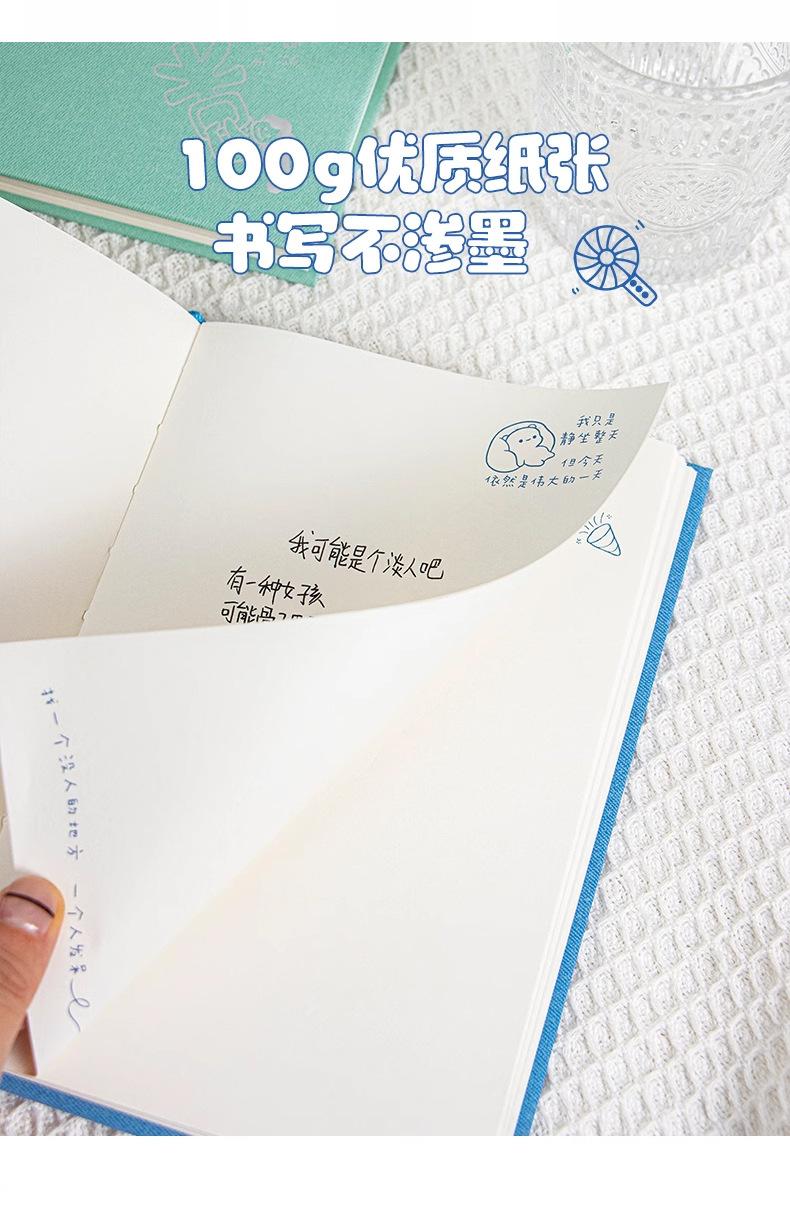 100g优质纸张
书写不渗墨
我只是
静坐整天
但今天
依然是伟大的一天
我可能是个淡人吧
有一种女孩
可能
找一个没人的地方 一个人发呆